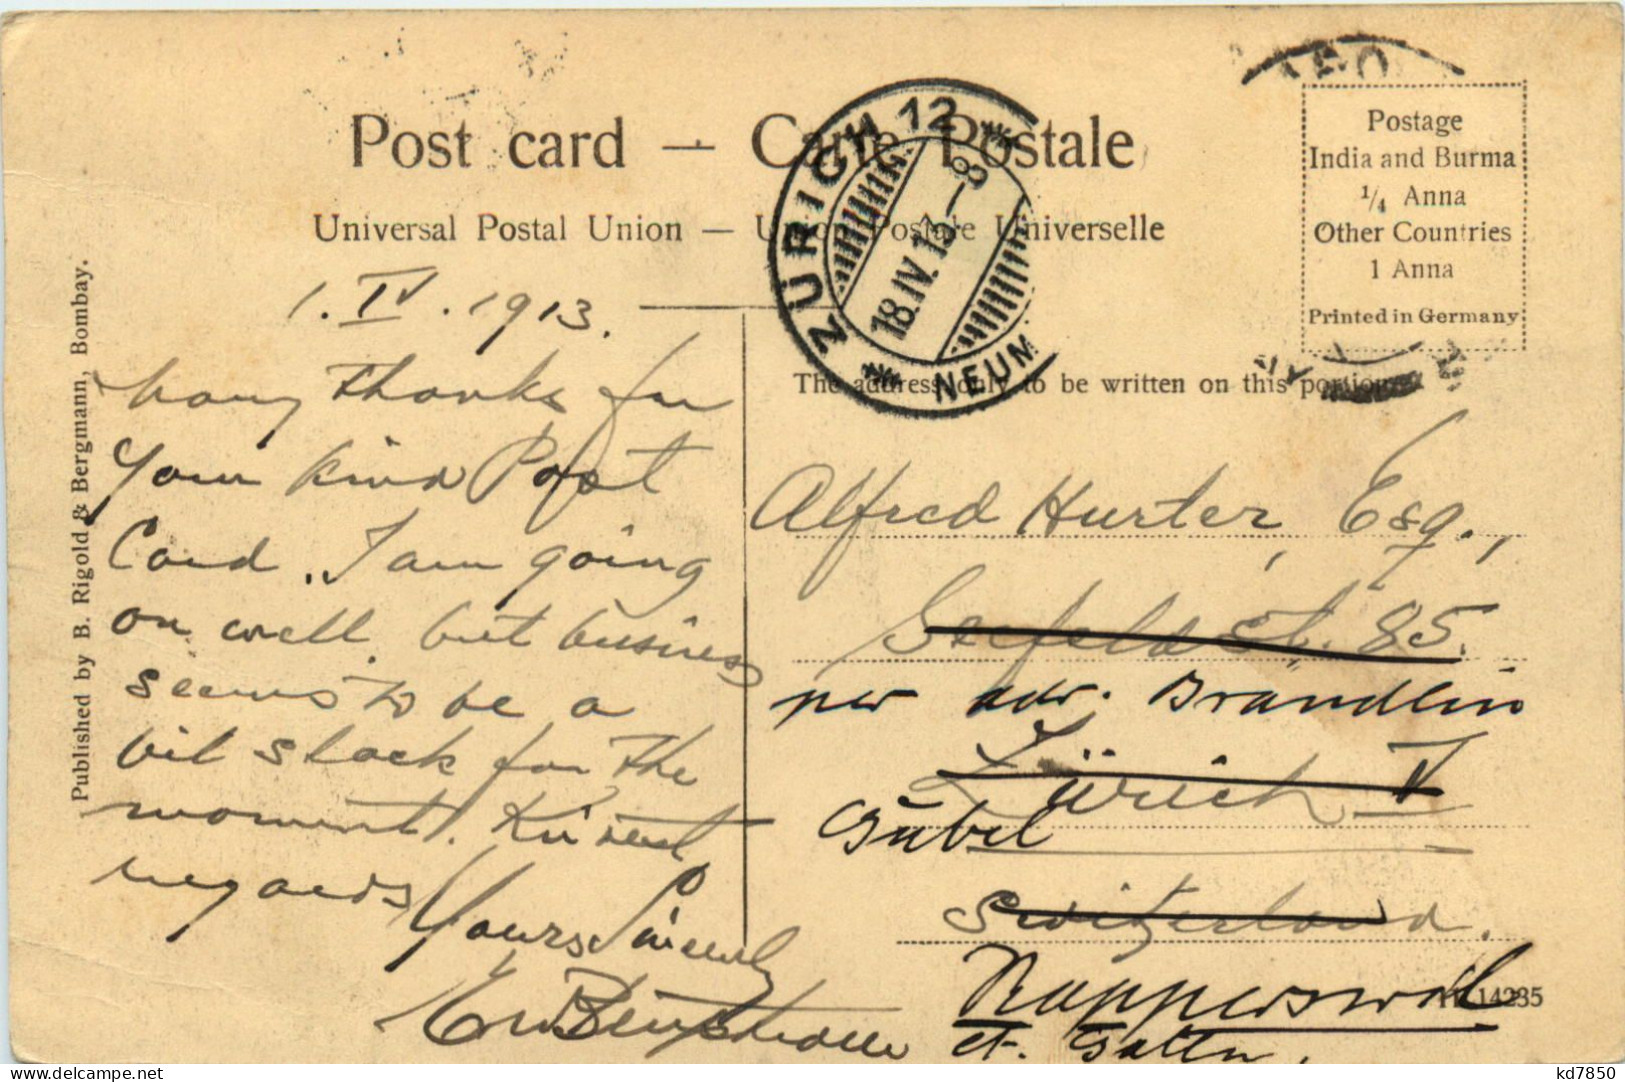 Post card — Carte Postale
Universal Postal Union — Union Postale Universelle
ZÜRICH 12
18.IV.13—8
NEUM
Postage
India and Burma
1/4 Anna
Other Countries
1 Anna
Printed in Germany
The address only to be written on this portion
Published by B. Rigold & Bergmann, Bombay.
1. IV. 1913.
Many thanks for
your kind Post
Card. I am going
on well, but business
seems to be a
bit slack for the
moment. Kindest
regards
Yours Sincerely
Alfred Hurter, Esq.,
Seefeldst. 85.
per adr. Brändlin
Zürich V
Gubel
Switzerland.
Rapperswil
St. Gallen.
14235
kd7850